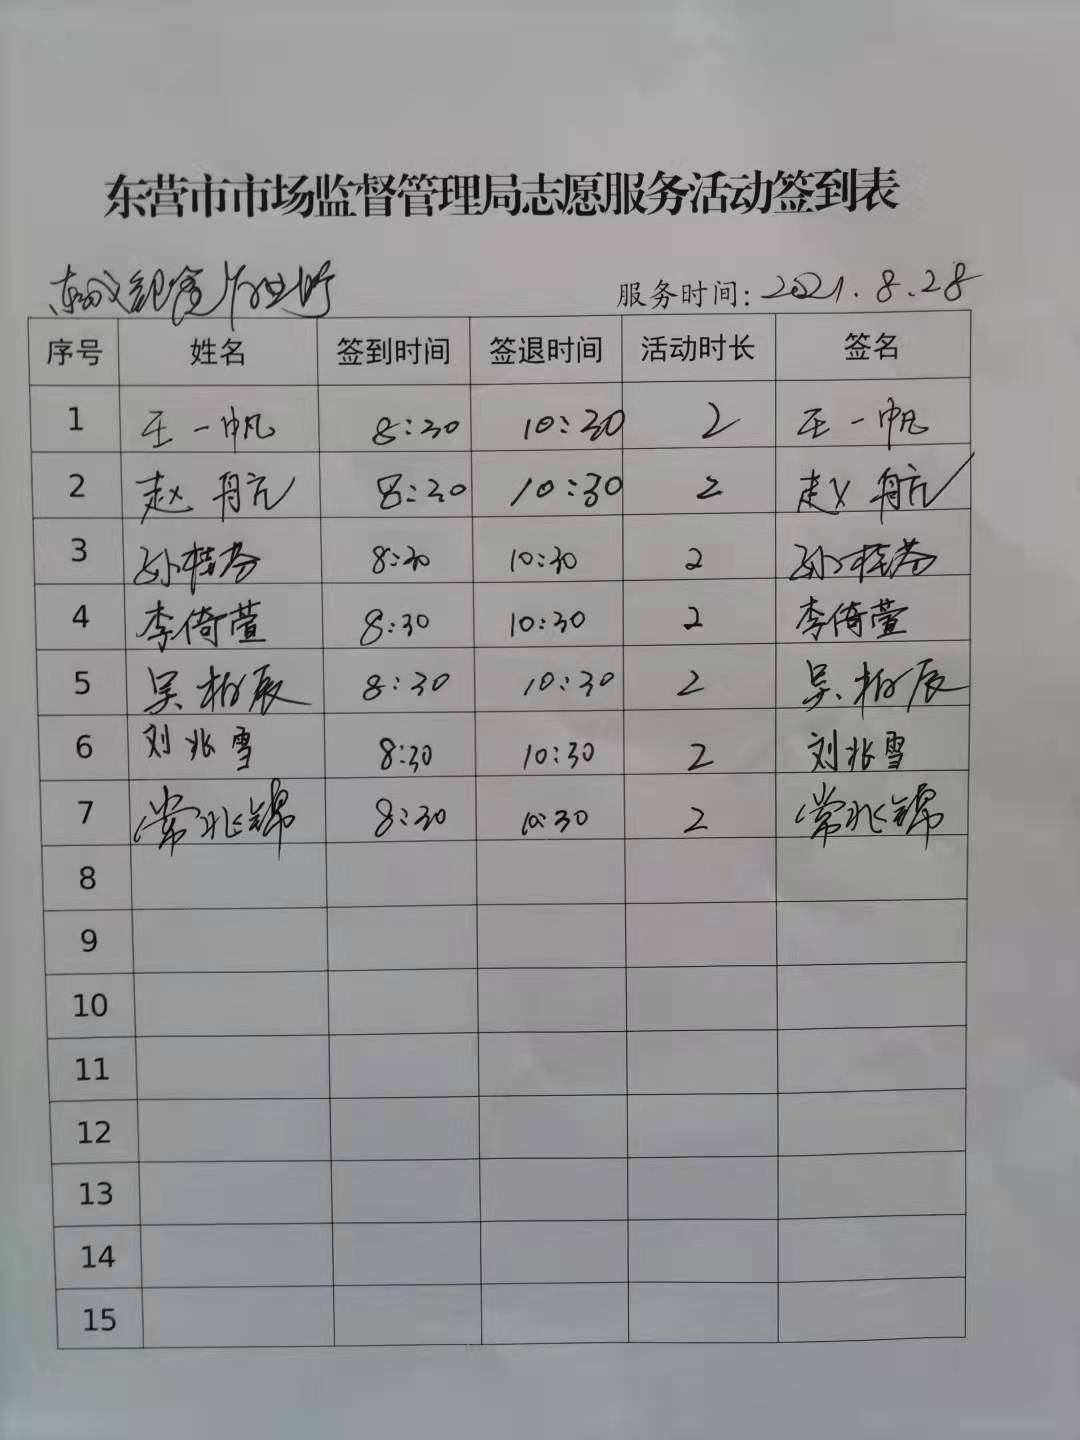 东营市市场监督管理局志愿服务活动签到表
服务时间: 2021.8.28
序号 姓名 签到时间 签退时间 活动时长 签名
1 王一帆 8:30 10:30 2 王一帆
2 赵航 8:30 10:30 2 赵航
3 孙桂芬 8:30 10:30 2 孙桂芬
4 李倚萱 8:30 10:30 2 李倚萱
5 吴柏辰 8:30 10:30 2 吴柏辰
6 刘兆雪 8:30 10:30 2 刘兆雪
7 常兆锦 8:30 10:30 2 常兆锦
8
9
10
11
12
13
14
15